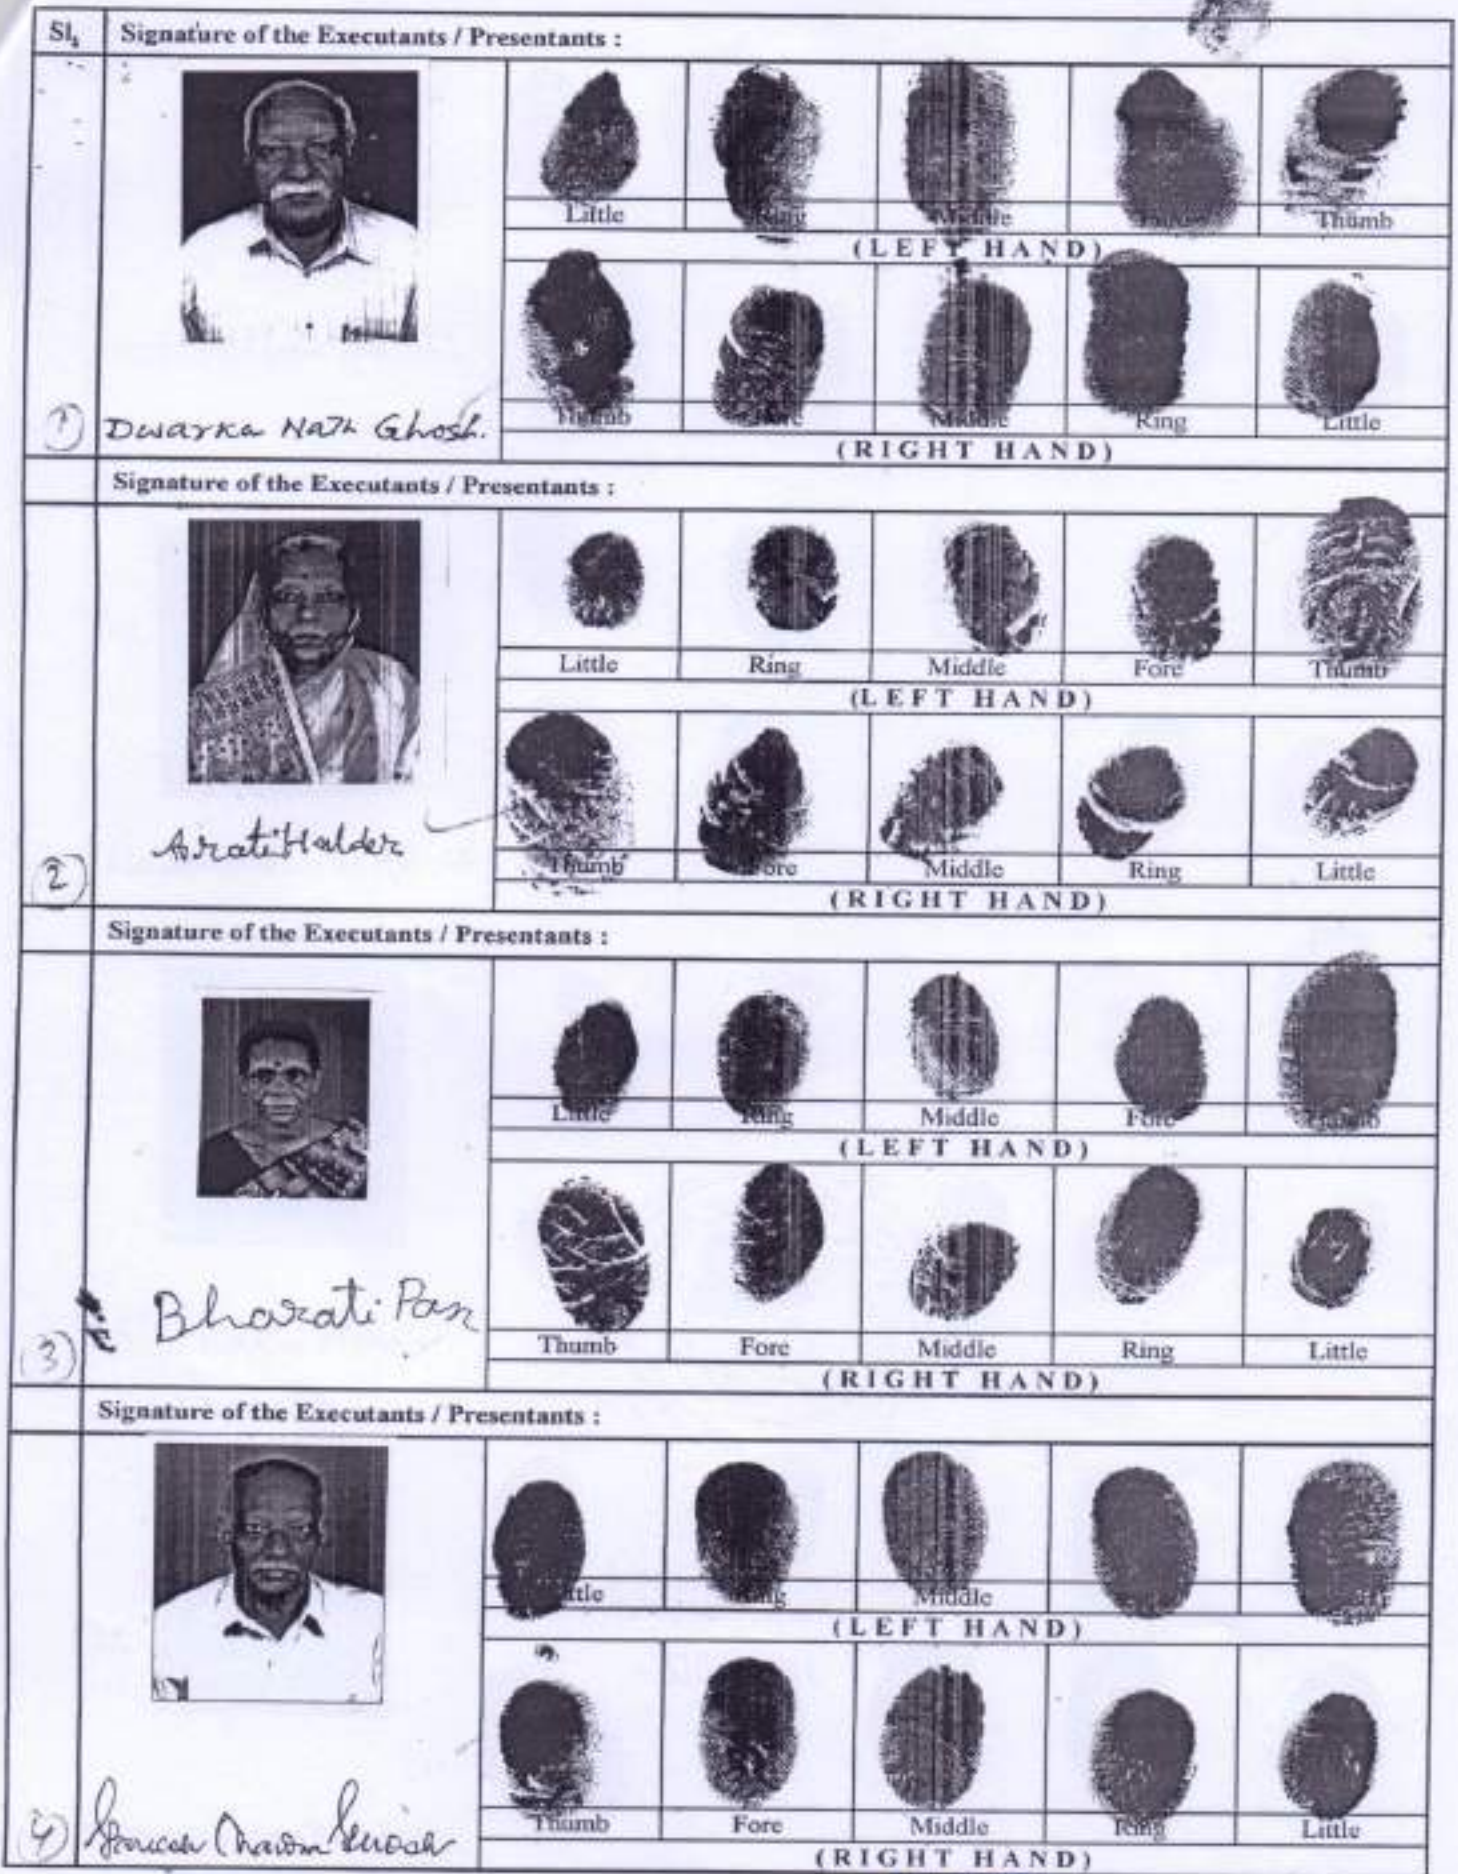 Sl. Signature of the Executants / Presentants :
Little Ring Middle Thumb
(LEFT HAND)
Thumb Fore Middle Ring Little
1 Dwarka Nath Ghosh.
(RIGHT HAND)
Signature of the Executants / Presentants :
Little Ring Middle Fore Thumb
(LEFT HAND)
Arati Halder
Thumb Fore Middle Ring Little
2
(RIGHT HAND)
Signature of the Executants / Presentants :
Little Ring Middle Fore Thumb
(LEFT HAND)
Bharati Pan
Thumb Fore Middle Ring Little
3
(RIGHT HAND)
Signature of the Executants / Presentants :
Little Ring Middle
(LEFT HAND)
Thumb Fore Middle Ring Little
4
(RIGHT HAND)